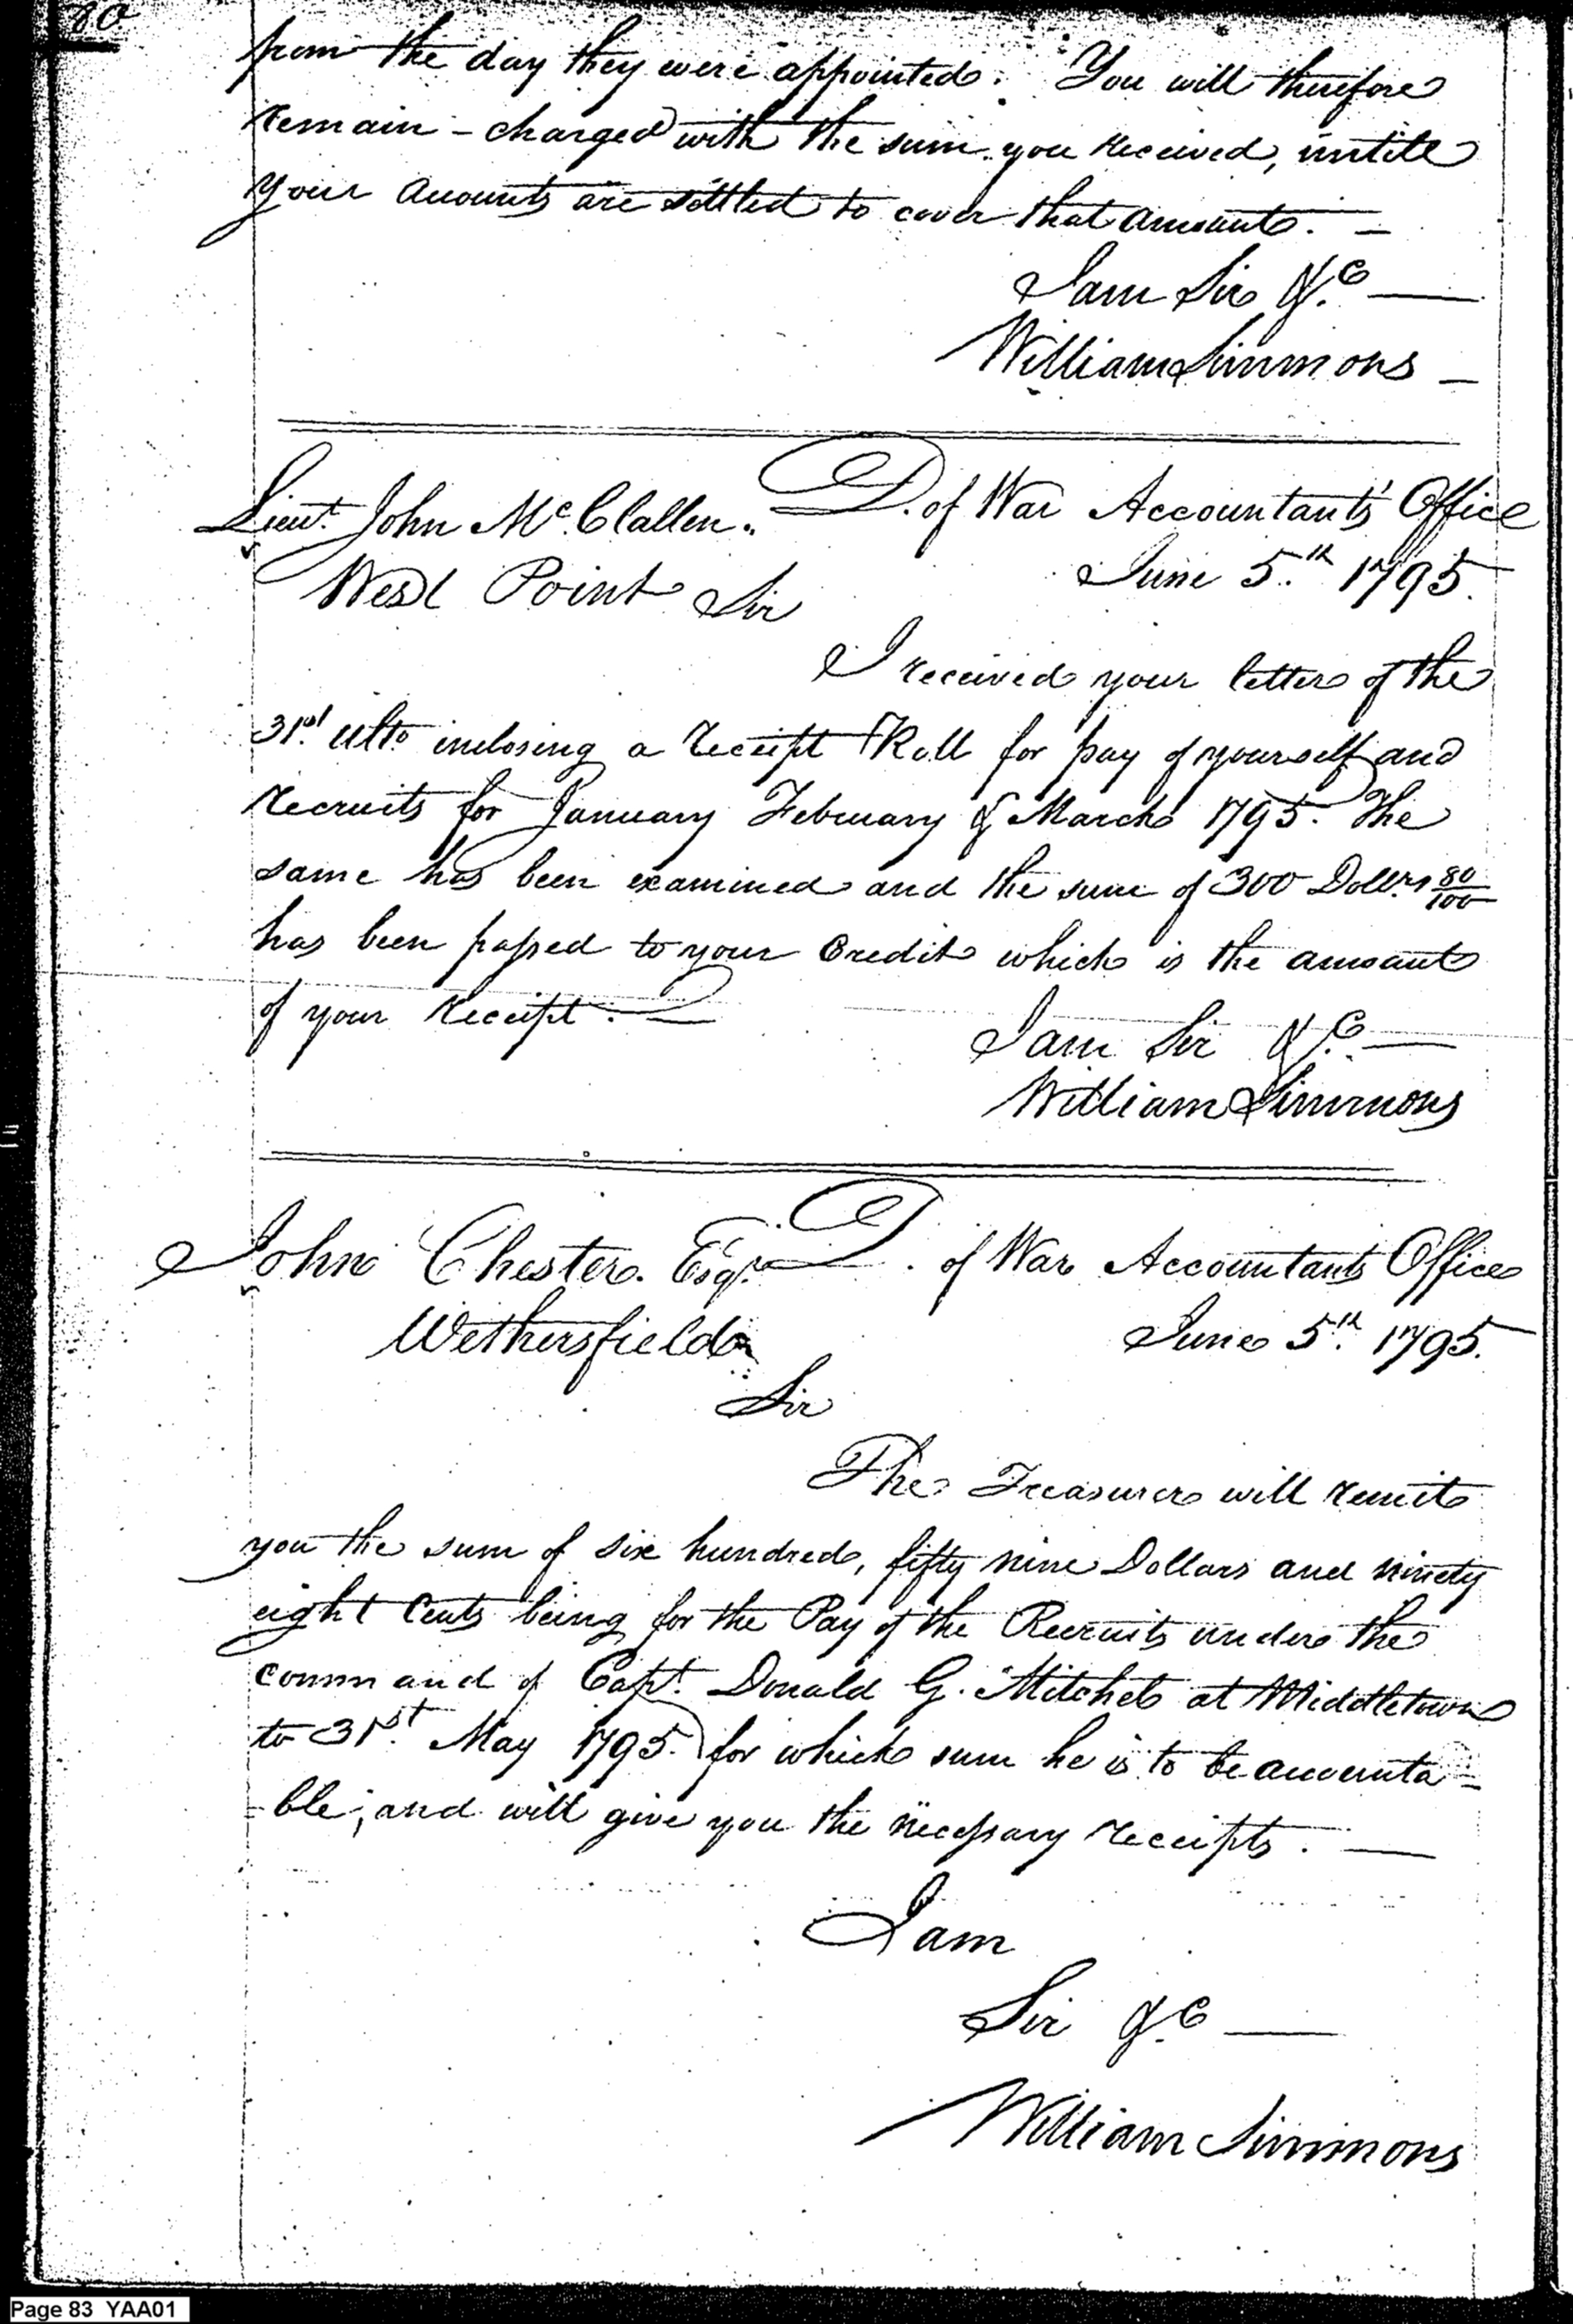 80
from the day they were appointed. You will therefore
remain - charged with the sum you received, untill
your accounts are settled to cover that amount. —
I am Sir &c —
William Simmons —
Lieut. John McClallen. D. of War Accountant's Office
West Point Sir June 5.th 1795.
I received your letter of the
31st. ulto. inclosing a receipt Roll for pay of yourself and
recruits for January February & March 1795. The
same has been examined and the sum of 300 Dollrs 80/100
has been passed to your Credit which is the amount
of your receipt. —
I am Sir &c. —
William Simmons
John Chester. Esqr. D. of War Accountants Office
Wethersfield June 5.th 1795.
Sir
The Treasurer will remit
you the sum of six hundred, fifty nine Dollars and ninety
eight Cents being for the Pay of the Recruits under the
command of Capt. Donald G. Mitchel at Middletown
to 31st. May 1795. for which sum he is to be accounta=
=ble; and will give you the necessary receipts. —
I am
Sir &c —
William Simmons
Page 83 YAA01